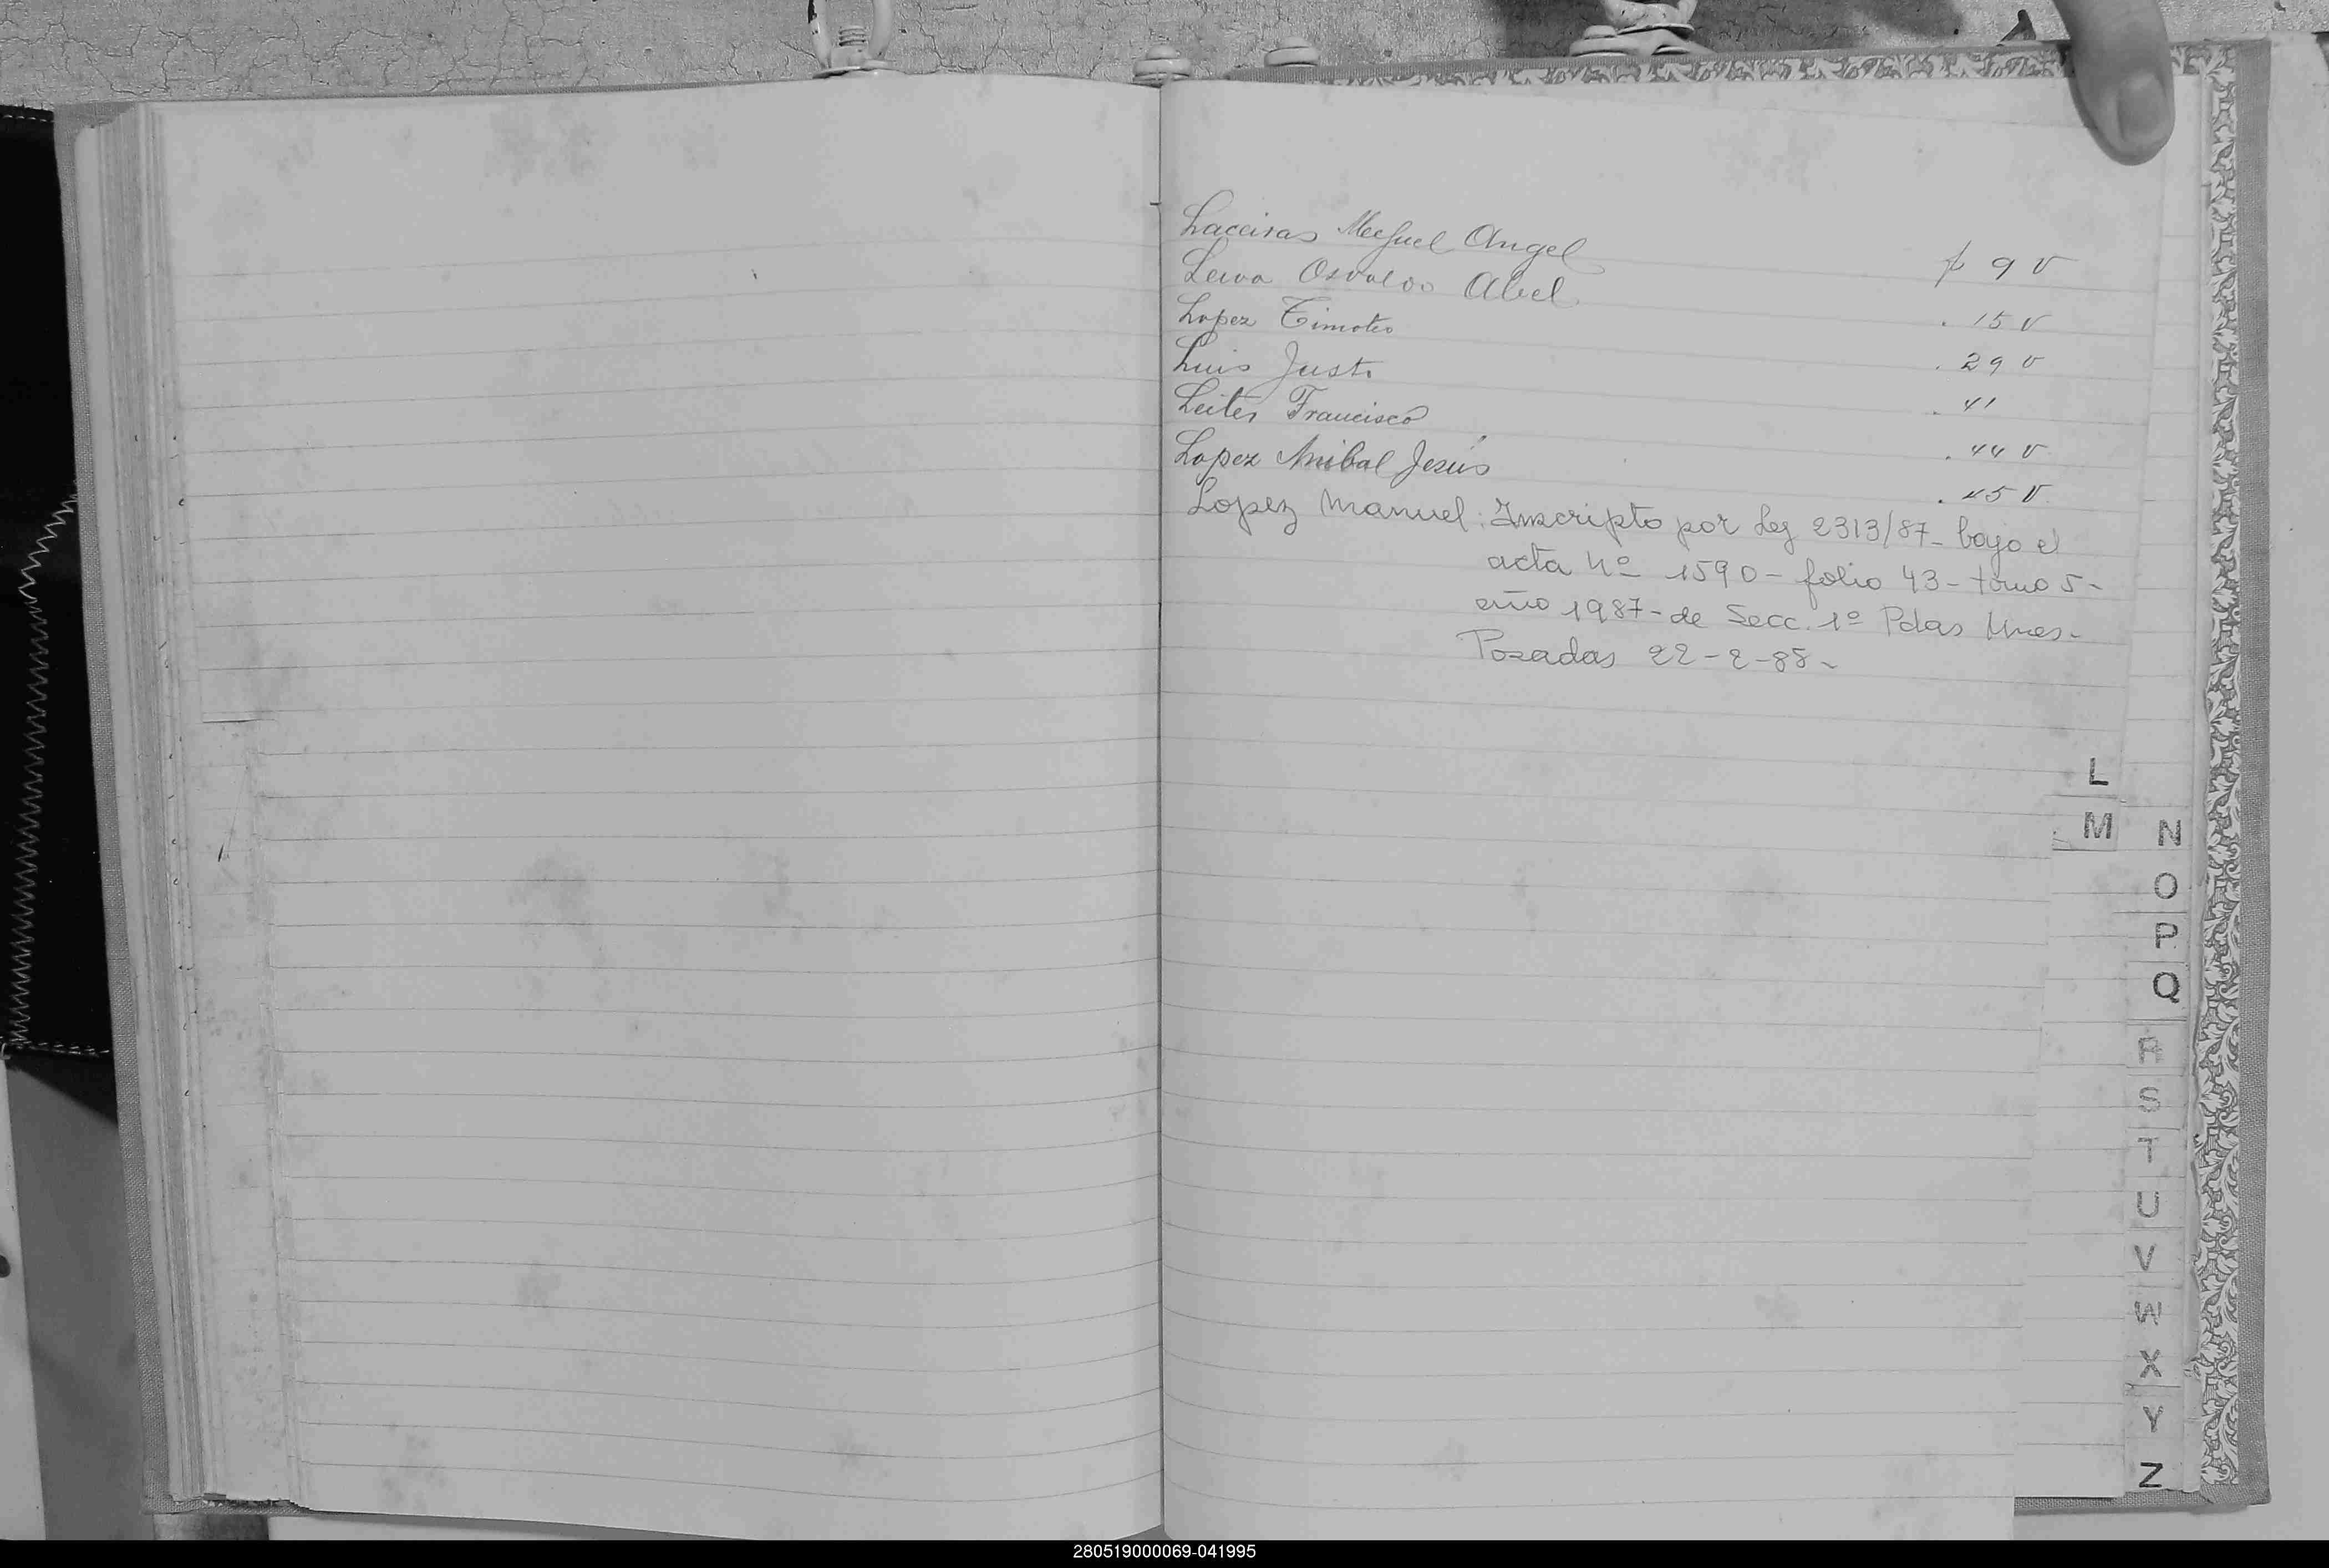 Laceiras Miguel Angel f 9 v
Leiva Osvaldo Abel . 15 v
Lopez Timoteo . 29 v
Luis Justo . 41
Leites Francisco . 44 v
Lopez Anibal Jesús . 45 v
Lopez Manuel: Inscripto por Ley 2313/87- bajo el
acta Nº 1590- folio 43- tomo 5-
año 1987- de Secc. 1º Pdas Mnes-
Posadas 22-2-88-
L
M
N
O
P
Q
R
S
T
U
V
W
X
Y
Z
280519000069-041995